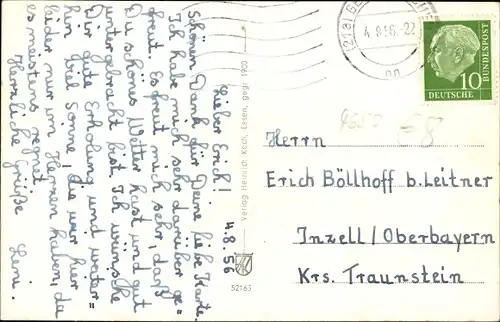 4.8.56
Lieber Erich!
Schönen Dank für Deine liebe Karte.
Ich habe mich sehr darüber ge=
freut. Es freut mich sehr, daß
Du schönes Wetter hast und gut
untergebracht bist. Ich wünsche
Dir gute Erholung und weiter=
hin viel Sonne, die wir hier
leider nur im Herzen haben, da
es meistens regnet.
Herzliche Grüße
Leni.
Verlag Heinrich Koch, Essen, Gegr. 1900
52163
4.8.56.-22
DEUTSCHE
BUNDESPOST
10
Herrn
Erich Böllhoff b. Leitner
Inzell/Oberbayern
Krs. Traunstein